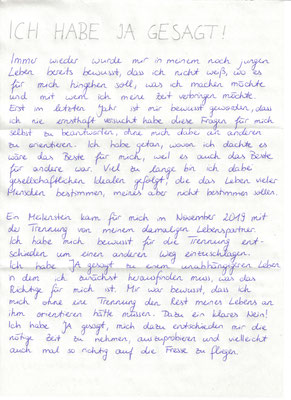 ICH HABE JA GESAGT!
Immer wieder wurde mir in meinem noch jungen
Leben bereits bewusst, dass ich nicht weiß, wo es
für mich hingehen soll, was ich machen möchte
und mit wem ich meine Zeit verbringen möchte.
Erst im letzten Jahr ist mir bewusst geworden, dass
ich nie ernsthaft versucht habe diese Fragen für mich
selbst zu beantworten, ohne mich dabei an anderen
zu orientieren. Ich habe getan, wovon ich dachte es
wäre das Beste für mich, weil es auch das Beste
für andere war. Viel zu lange bin ich dabei
gesellschaftlichen Idealen gefolgt, die das Leben vieler
Menschen bestimmen, meines aber nicht bestimmen sollen.
Ein Meilenstein kam für mich im November 2019 mit
der Trennung von meinem damaligen Lebenspartner.
Ich habe mich bewusst für die Trennung ent-
schieden um einen anderen Weg einzuschlagen.
Ich habe JA gesagt zu einem unabhängigeren Leben
in dem ich zunächst herausfinden muss, was das
Richtige für mich ist. Mir war bewusst, dass ich
mich ohne eine Trennung den Rest meines Lebens an
ihm orientieren hätte müssen. Dazu ein klares Nein!
Ich habe JA gesagt, mich dazu entschieden mir die
nötige Zeit zu nehmen, auszuprobieren und vielleicht
auch mal so richtig auf die Fresse zu fliegen.